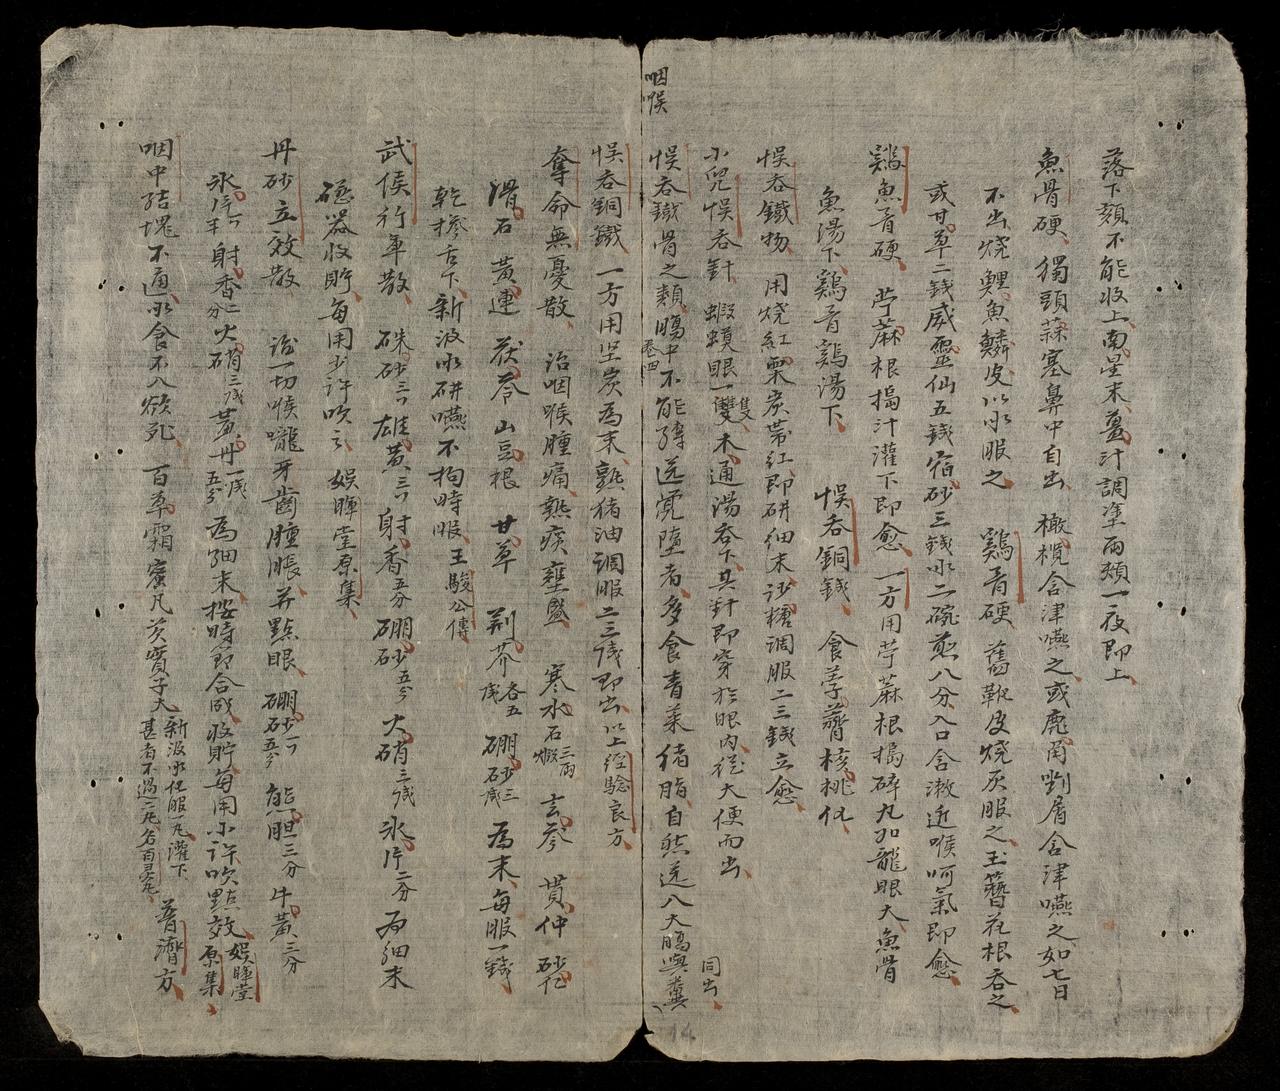 落下頦不能收上南星末薑汁調塗兩頰一夜即上
魚骨硬 獨頭蒜塞鼻中自出 橄欖含津嚥之或鹿角剉屑含津嚥之如七日
不出燒鯉魚鱗皮以水服之 鷄骨硬 舊靴皮燒灰服之玉簪花根吞之
或甘草二錢威靈仙五錢宿砂三錢水二碗煎八分入口含漱近喉呵氣即愈
鷄魚骨硬 苧蔴根搗汁灌下即愈 一方用苧蔴根搗碎丸如龍眼大魚骨
魚湯下鷄骨鷄湯下 悮吞銅錢 食荸薺核桃化
悮吞鐵物 用燒紅栗炭帶紅即研細末沙糖調服二三錢立愈
小兒悮吞針 蝦蟆眼一雙隻木通湯吞下其針即穿於眼內從大便而出
咽喉
悮吞鐵骨之類腸中不能轉送覺墮者多食青菜猪脂自然送入大腸與糞同出
卷四
14
悮吞銅鐵 一方用堅炭為末熟猪油調服二三錢即出以上經驗良方
奪命無憂散 治咽喉腫痛熱痰壅盛 寒水石煅三兩 玄參 貫仲 砂仁
滑石 黃連 茯苓 山豆根 甘草 荊芥各五錢 硼砂三錢 為末每服一錢
乾摻舌下新汲水研嚥不拘時服 王駿公傳
武侯行軍散 硃砂三 雄黃三 射香五分 硼砂五分 火硝三錢 氷片二分 為細末
磁器收貯每用少許吹之 娛暉堂原集
丹砂立效散 治一切喉嚨牙齒腫脹并點眼 硼砂五分 熊胆三分 牛黃三分
氷片 射香二分 火硝三錢 黃丹一錢五分 為細末按時節合成收貯每用小許吹點效娛暉堂原集
咽中結塊不通水食不入欲死 百草霜蜜凡芡實子大 新汲水化服一丸灌下甚者不過二丸名百靈丸 普濟方